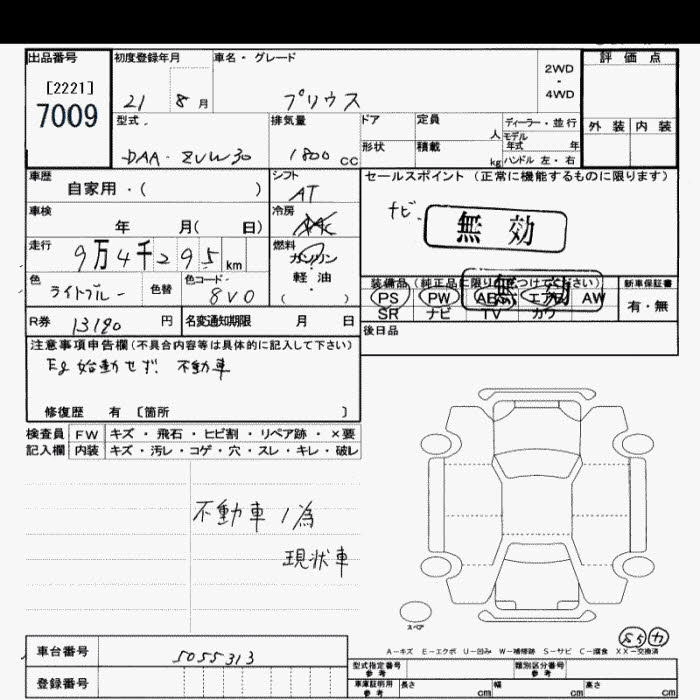 出品番号 初度登録年月 車名・グレード 評価点
[2221]
7009
21 8月 プリウス
2WD
・
4WD
型式. 排気量 ドア 定員 人 ディーラー・並行
モデル年式 年
外装 内装
DAA-ZVW30 1800 cc 形状 積載 kg ハンドル 左・右
車歴 自家用・( ) シフト AT
セールスポイント (正常に機能するものに限ります)
車検 年 月( 日) 冷房 AAC
ナビ.
無効
走行 9万4千295 km 燃料 ガソリン
軽・油
( )
色 ライトブルー 色替 色コード 8V0
装備品 (純正品に限り○をつけてください) 新車保証書
無効
PS PW ABS エアB AW 有・無
SR ナビ TV カワ
R券 13190 円 名変通知期限 月 日
後日品
注意事項申告欄 (不具合内容等は具体的に記入して下さい)
Eg 始動せず. 不動車
修復歴 有 〔箇所 〕
検査員 FW キズ・飛石・ヒビ割・リペア跡・×要
記入欄 内装 キズ・汚レ・コゲ・穴・スレ・キレ・破レ
不動車ノ為
現状車
スペア
A-キズ E-エクボ U-凹み W-補修跡 S-サビ C-腐食 XX-交換済
車台番号 5055313
登録番号
型式指定番号 参考 類別区分番号 参考
車庫証明用 参考 長さ cm 幅 cm 高さ cm